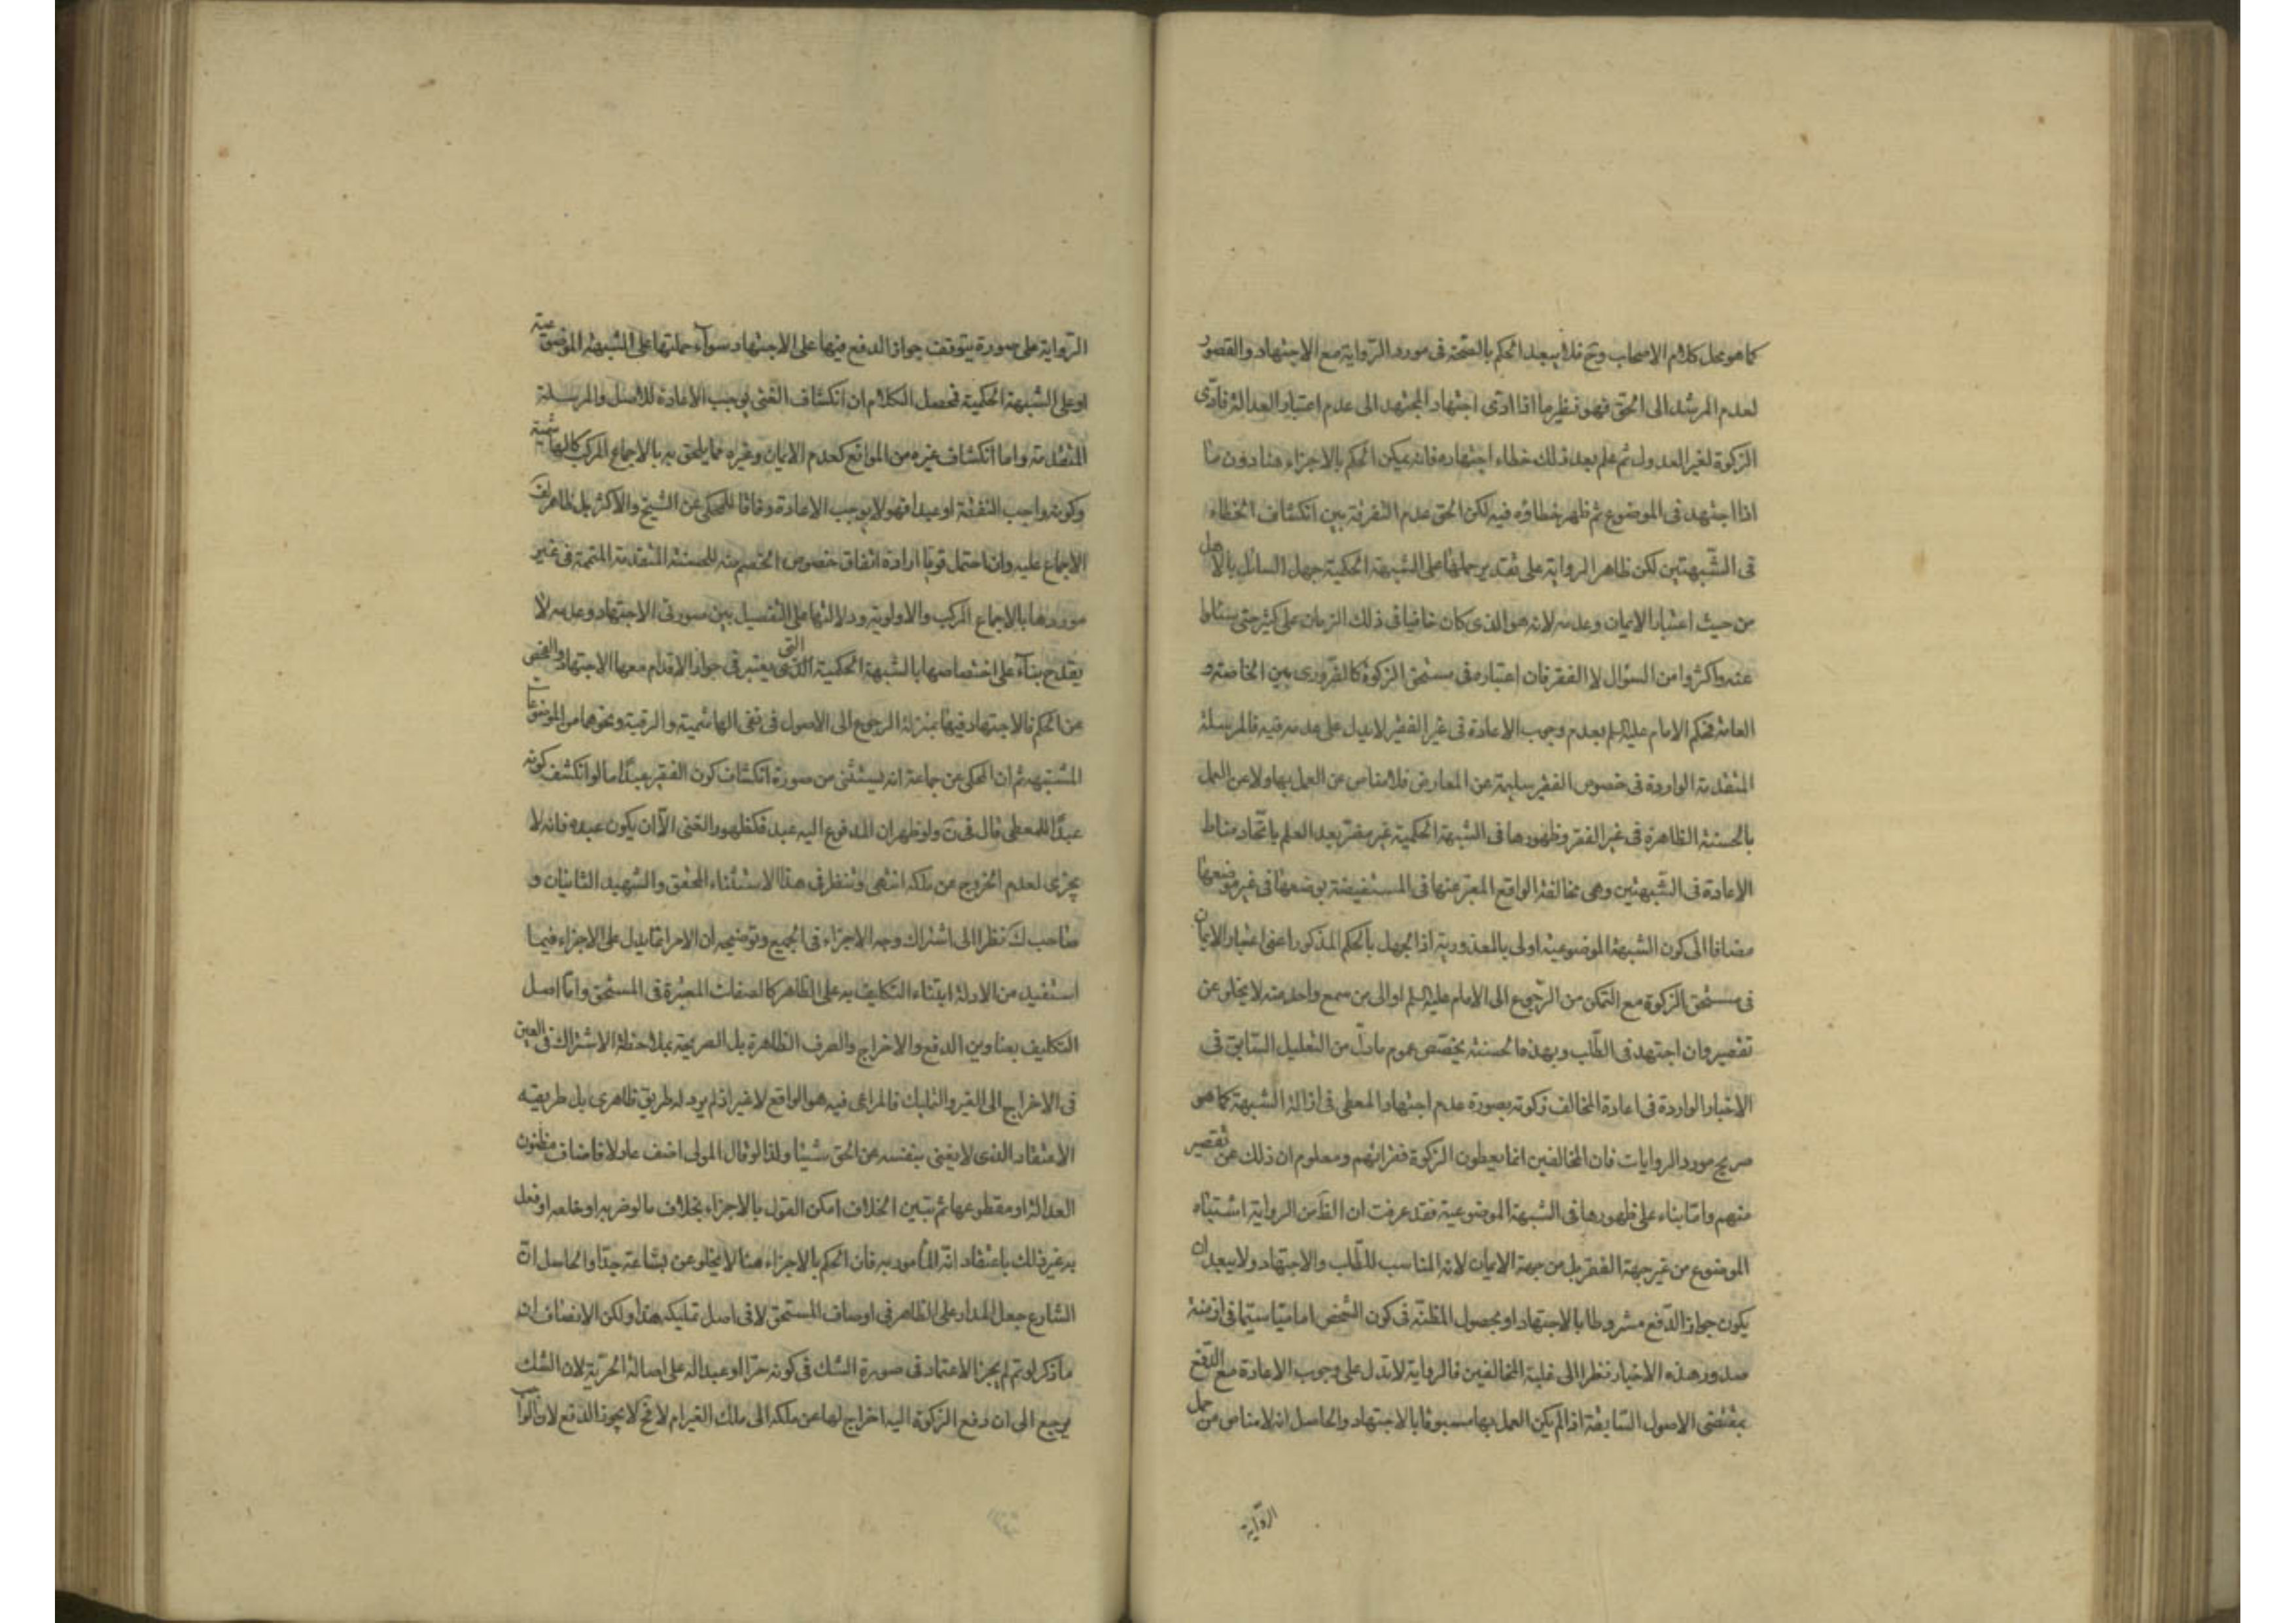 كما هو محل كلام الاصحاب وح فلا يبعد الحكم بالصحة فى مورد الرّواية مع الاجتهاد والقصور
لعدم المرشد الى الحق فهو نظير ما اذا ادى اجتهاد المجتهد الى عدم اعتبار العدالة فادّى
الزكوة لغير العدول ثم علم بعد ذلك خطاء اجتهاده فانه يمكن الحكم بالاجزاء هنا دون ما
اذا اجتهد فى الموضوع ثم ظهر خطاؤه فيه لكن الحق عدم التفرقة بين انكشاف الخطاء
فى الشّبهتين لكن ظاهر الرواية على تقدير حملها على الشبهة الحكمية جهل السائل بالاهل
من حيث اعتبار الايمان وعدمه لانه هو الذى كان خافيا فى ذلك الزمان على كثير حتى سئلوا
عنه واكثروا من السؤال لا الفقر فان اعتباره فى مستحق الزكوة كالضرورى بين الخاصة و
العامة فحكم الامام عليه السلم بعدم وجوب الاعادة فى غير الفقير لا يدل على عدمه فيه فالمرسلة
المتقدمة الواردة فى خصوص الفقير سليمة عن المعارض فلا مناص عن العمل بها ولا عن العمل
بالحسنة الظاهرة فى غير الفقر وظهورها فى الشبهة الحكمية غير مضرّ بعد العلم باتّحاد مناط
الاعادة فى الشّبهتين وهى مخالفة الواقع المعبّر عنها فى المستفيضة بوضعها فى غير موضعها
مضافا الى كون الشبهة الموضوعية اولى بالمعذورية اذ الجهل بالحكم المذكور اعنى اعتبار الايمان
فى مستحق الزكوة مع التمكن من الرّجوع الى الامام عليه السلم او الى من سمع واحد منه لا يخلو عن
تقصير وان اجتهد فى الطّلب وبهذه الحسنة يخصّص عموم ما دلّ من التعليل السّابق فى
الاخبار الواردة فى اعادة المخالف زكوته بصورة عدم اجتهاد المعطى فى ازالة الشبهة كما هو
صريح مورد الروايات فان المخالفين انما يعطون الزكوة فقرائهم ومعلوم ان ذلك عن تقصير
منهم وامّا بناء على ظهورها فى الشبهة الموضوعية فقد عرفت ان الظ من الرواية اشتباه
الموضوع من غير جهة الفقر بل من جهة الايمان لانه المناسب للطّلب والاجتهاد ولا يبعد ان
يكون جواز الدّفع مشروطا بالاجتهاد او بحصول المظنّة فى كون الشخص اماميّا سيّما فى ازمنة
صدور هذه الاخبار نظرا الى غلبة المخالفين فالرواية لا تدل على وجوب الاعادة مع الدّفع
بمقتضى الاصول السّابقة اذا لم يكن العمل بها مسبوقا بالاجتهاد والحاصل انه لا مناص من حمل
الرّواية
الرّواية على صورة يتوقف جواز الدفع فيها على الاجتهاد سوآء حملتها على الشبهة الموضوعية
او على الشبهة الحكمية فحصل الكلام ان انكشاف الغنى يوجب الاعادة للاصل والمرسلة
المتقدمة واما انكشاف غيره من الموانع كعدم الايمان وغيره مما يلحق به بالاجماع المركب كالهاشمية
وكونه واجب النفقة او عبدا فهو لا يوجب الاعادة وفاقا للمحكى عن الشيخ والاكثر بل ظاهر
الاجماع عليه وان احتمل قويا ارادة اتفاق خصوص الخصم منه للحسنة المتقدمة المتممة فى غير
موردها بالاجماع المركب والاولوية ودلالتها على التفصيل بين صورتى الاجتهاد وعدمه لا
يقدح بنآء على اختصاصها بالشبهة الحكمية الذى التى يعتبر فى جواز الاقدام معها الاجتهاد والفحص
عن الحكم فالاجتهاد فيها بمنزلة الرجوع الى الاصول فى نفى الهاشمية والرقية ونحوهما من الموضوعات
المشتبهه ثم ان المحكى عن جماعة انه يستثنى من صورة انكشاف كون الفقير عبدًا ما لو انكشف كونه
عبدًا للمعطى قال فى ولو ظهر ان المدفوع اليه عبد فكظهور الغنى الّا ان يكون عبده فانه لا
يجزى لعدم الخروج عن ملكه انتهى وتنظر فى هذا الاستثناء المحقق والشهيد الثانيان و
صاحب ك نظرا الى اشتراك وجه الاجزاء فى الجميع وتوضيحه ان الامر انما يدل على الاجزاء فيما
استفيد من الادلة ابتناء التكليف به على الظاهر كالصفات المعتبرة فى المستحق وامّا اصل
التكليف بعناوين الدفع والاخراج والصرف الظاهرة بل الصريحة بملاحظة الاشتراك فى العين
فى الاخراج الى الغير والتمليك فالمراعى فيه هو الواقع لا غير اذ لم يرد له طريق ظاهرى بل طريقه
الاعتقاد الذى لا يغنى بنفسه عن الحق شيئا ولذا لو قال المولى اضف عادلا فاضاف مظنون
العدالة او مقطوعها ثم تبين الخلاف امكن القول بالاجزاء بخلاف ما لو ضربه او خلعه او فعل
به غير ذلك باعتقاد انّه المأمور به فان الحكم بالاجزاء هنا لا يخلو عن بشاعة جدّا والحاصل انّ
الشارع جعل المدار على الظاهر فى اوصاف المستحق لا فى اصل تمليكه هذا ولكن الانصاف انه
ما ذكر لو تم لم يجز الاعتماد فى صورة الشك فى كونه حرّا او عبدا له على اصالة الحرّية لان الشك
يرجع الى ان دفع الزكوة اليه اخراج لها عن ملكه الى ملك الغير ام لا فح لا يجوز الدفع لان الواجب